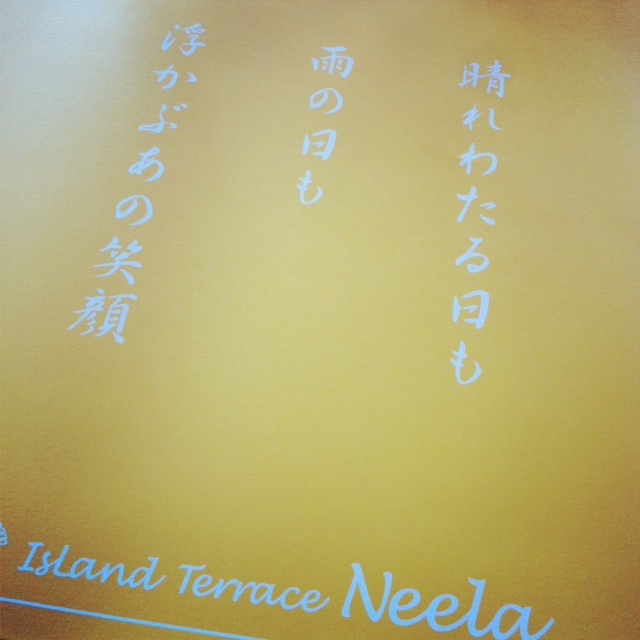 晴れわたる日も
雨の日も
浮かぶあの笑顔
Island Terrace Neela